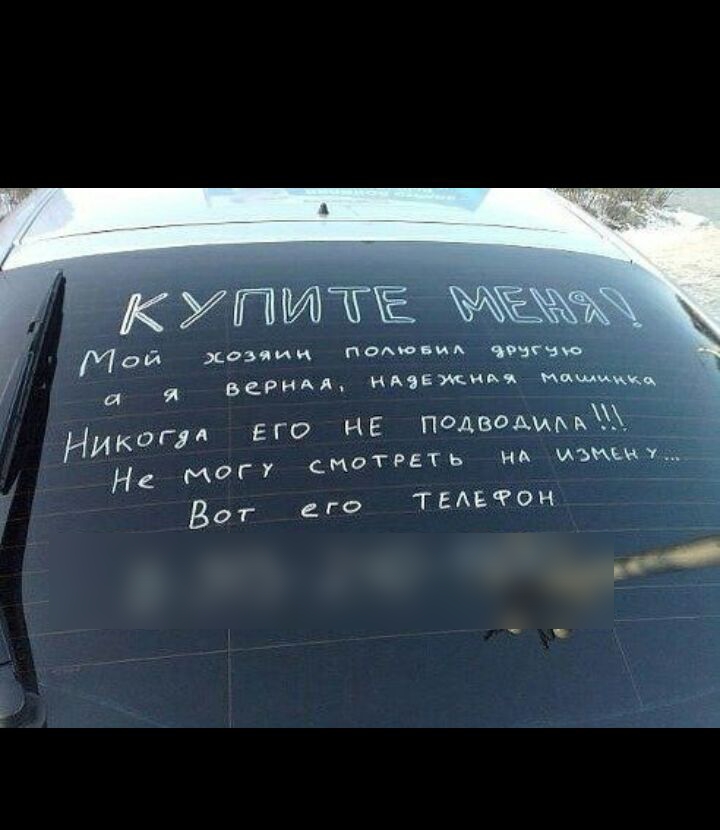 КУПИТЕ МЕНЯ!
Мой хозяин полюбил другую
а я верная, надежная машинка
Никогда его не подводила!!!
Не могу смотреть на измену...
Вот его телефон